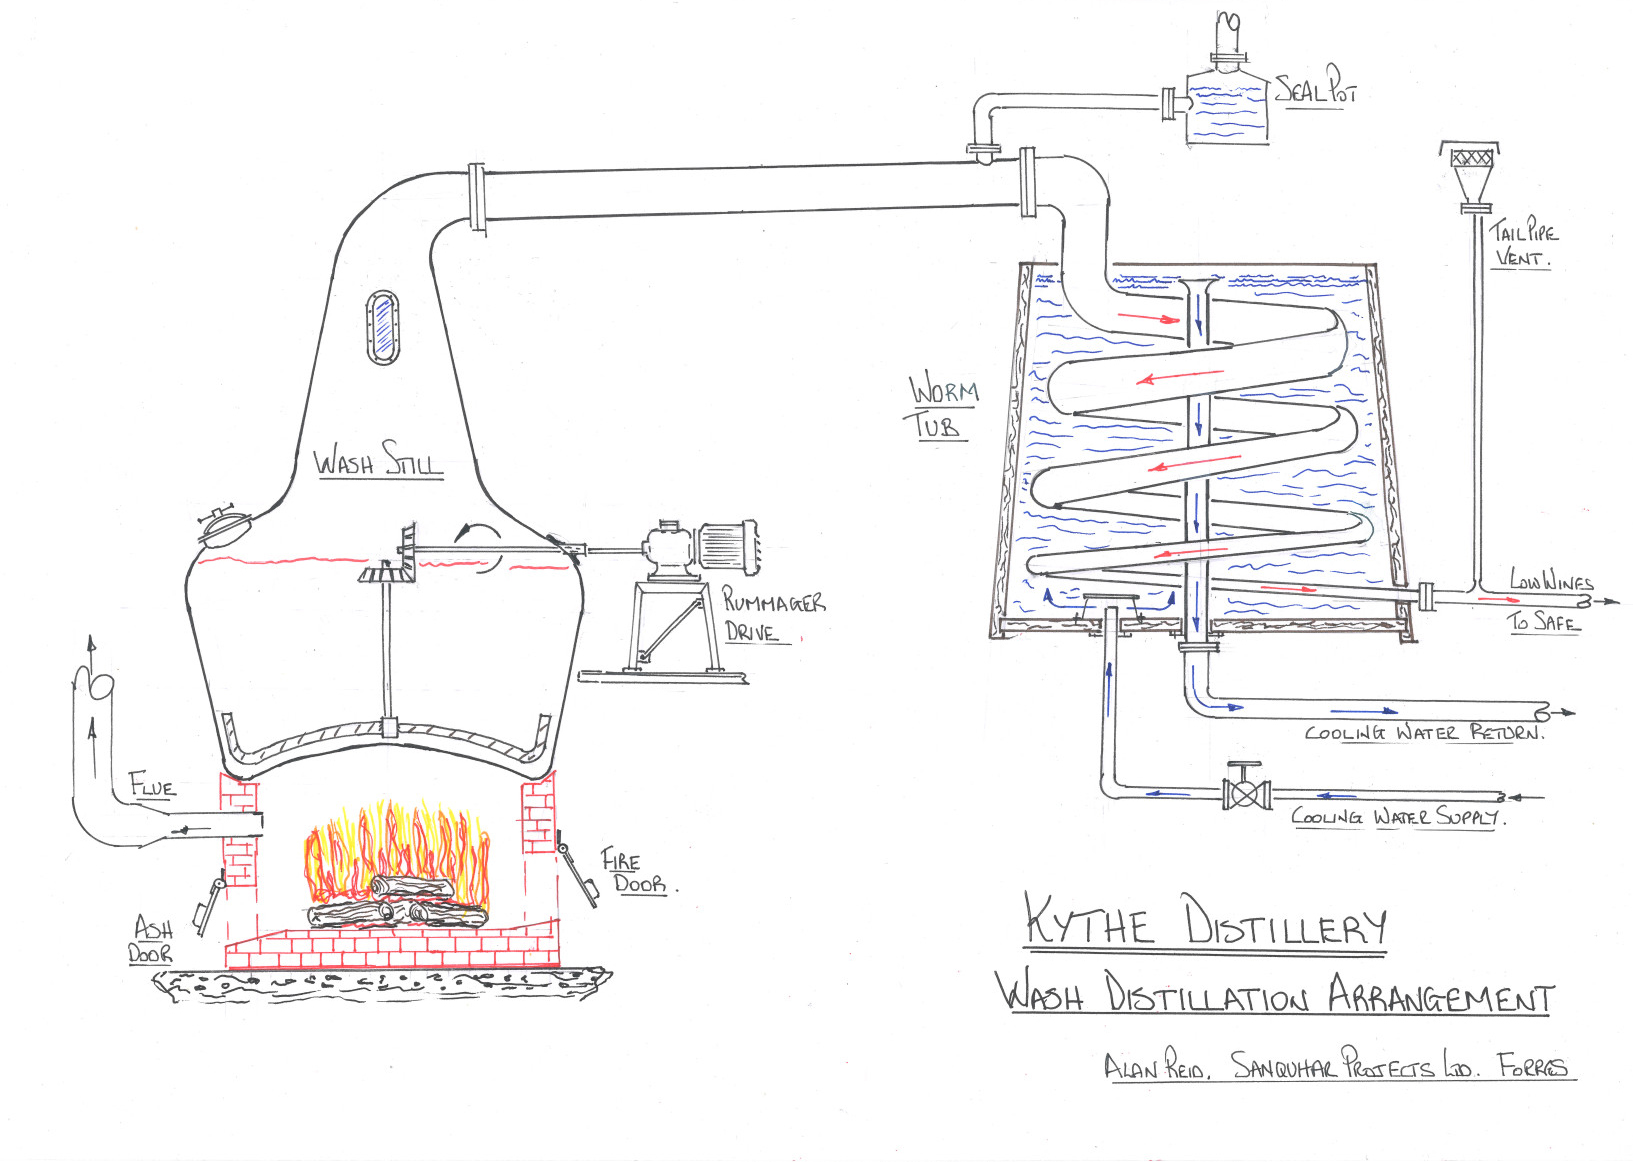 SEAL POT
TAIL PIPE
VENT.
WORM
TUB
WASH STILL
RUMMAGER
DRIVE
LOW WINES
TO SAFE
COOLING WATER RETURN.
COOLING WATER SUPPLY.
FLUE
FIRE
DOOR.
ASH
DOOR
KYTHE DISTILLERY
WASH DISTILLATION ARRANGEMENT
ALAN REID. SANQUHAR PROJECTS LTD. FORRES